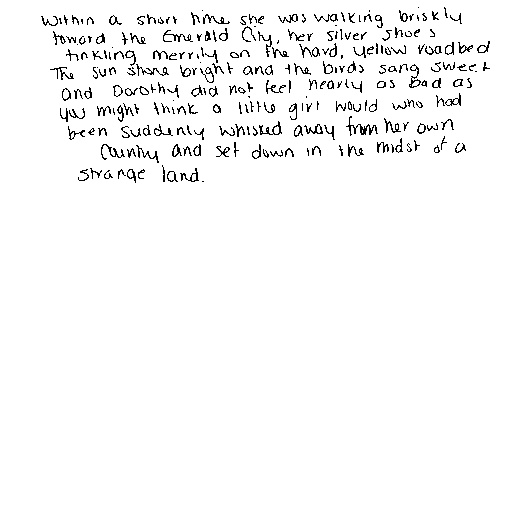 Within a short time she was walking briskly
toward the Emerald City, her silver shoes
tinkling merrily on the hard, yellow roadbed
The sun shone bright and the birds sang sweet
and Dorothy did not feel nearly as bad as
you might think a little girl would who had
been suddenly whisked away from her own
Country and set down in the midst of a
strange land.